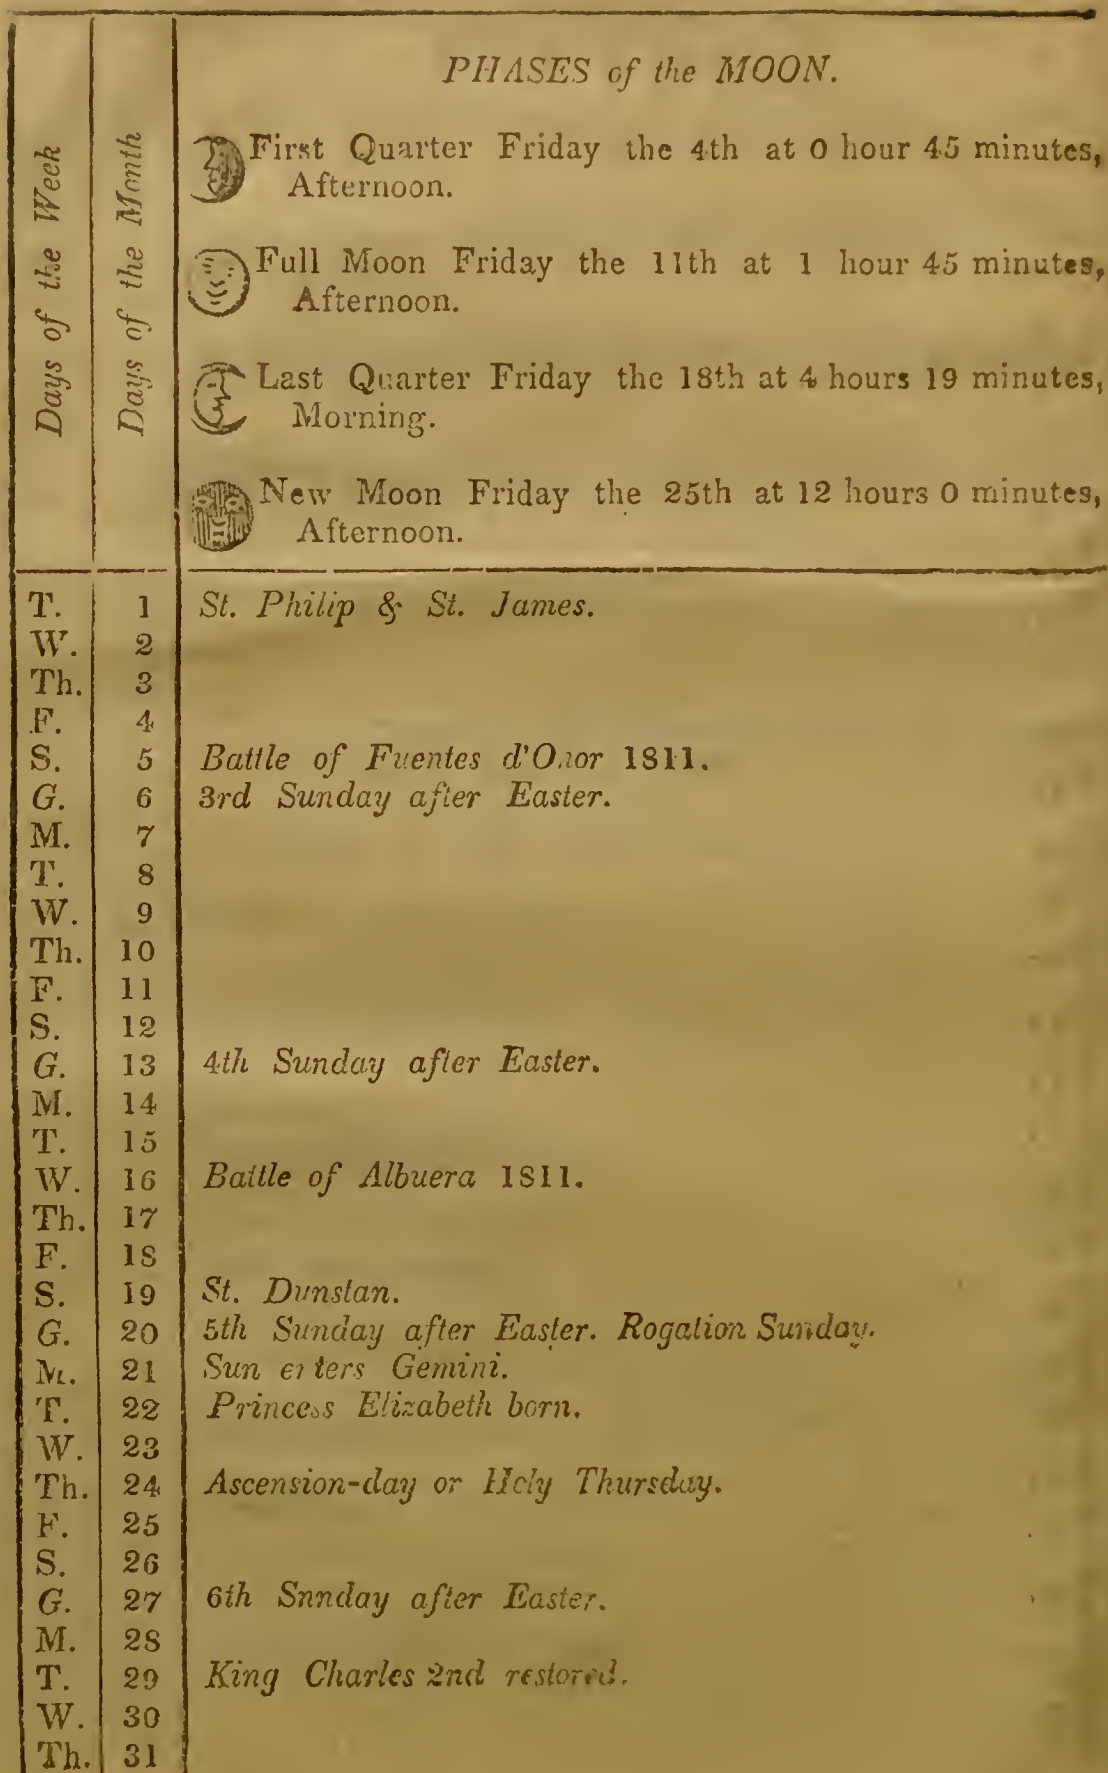 PHASES of the MOON.
Days of the Week
Days of the Month
First Quarter Friday the 4th at 0 hour 45 minutes,
Afternoon.
Full Moon Friday the 11th at 1 hour 45 minutes,
Afternoon.
Last Quarter Friday the 18th at 4 hours 19 minutes,
Morning.
New Moon Friday the 25th at 12 hours 0 minutes,
Afternoon.
T. 1 St. Philip & St. James.
W. 2
Th. 3
F. 4
S. 5 Battle of Fuentes d'Onor 1811.
G. 6 3rd Sunday after Easter.
M. 7
T. 8
W. 9
Th. 10
F. 11
S. 12
G. 13 4th Sunday after Easter.
M. 14
T. 15
W. 16 Battle of Albuera 1811.
Th. 17
F. 18
S. 19 St. Dunstan.
G. 20 5th Sunday after Easter. Rogation Sunday.
M. 21 Sun enters Gemini.
T. 22 Princess Elizabeth born.
W. 23
Th. 24 Ascension-day or Holy Thursday.
F. 25
S. 26
G. 27 6th Snnday after Easter.
M. 28
T. 29 King Charles 2nd restored.
W. 30
Th. 31